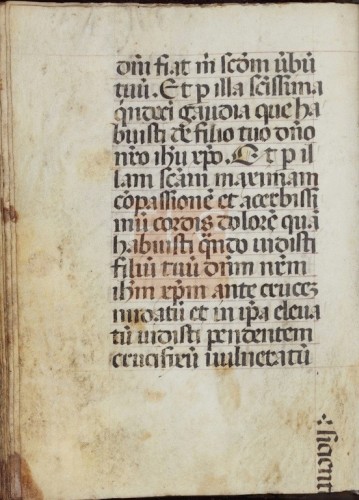 dm̄ fiat m̄ scd̄m ūbū
tuū. Et p illa scīssima
qīndeci gaudia que ha
buisti de filio tuo dn̄o
nr̄o ihū xp̄o. Et p il
lam scām maximam
cōpassionē et acerbissi
mū cordis dolorē quā
habuisti qn̄do uidisti
filiū tuū dn̄m nr̄m
ihm̄ xpm̄ ante crucez
nudatū et in ip̄a eleua
tū uidisti pendentem
crucifixū uulneratū
sicient